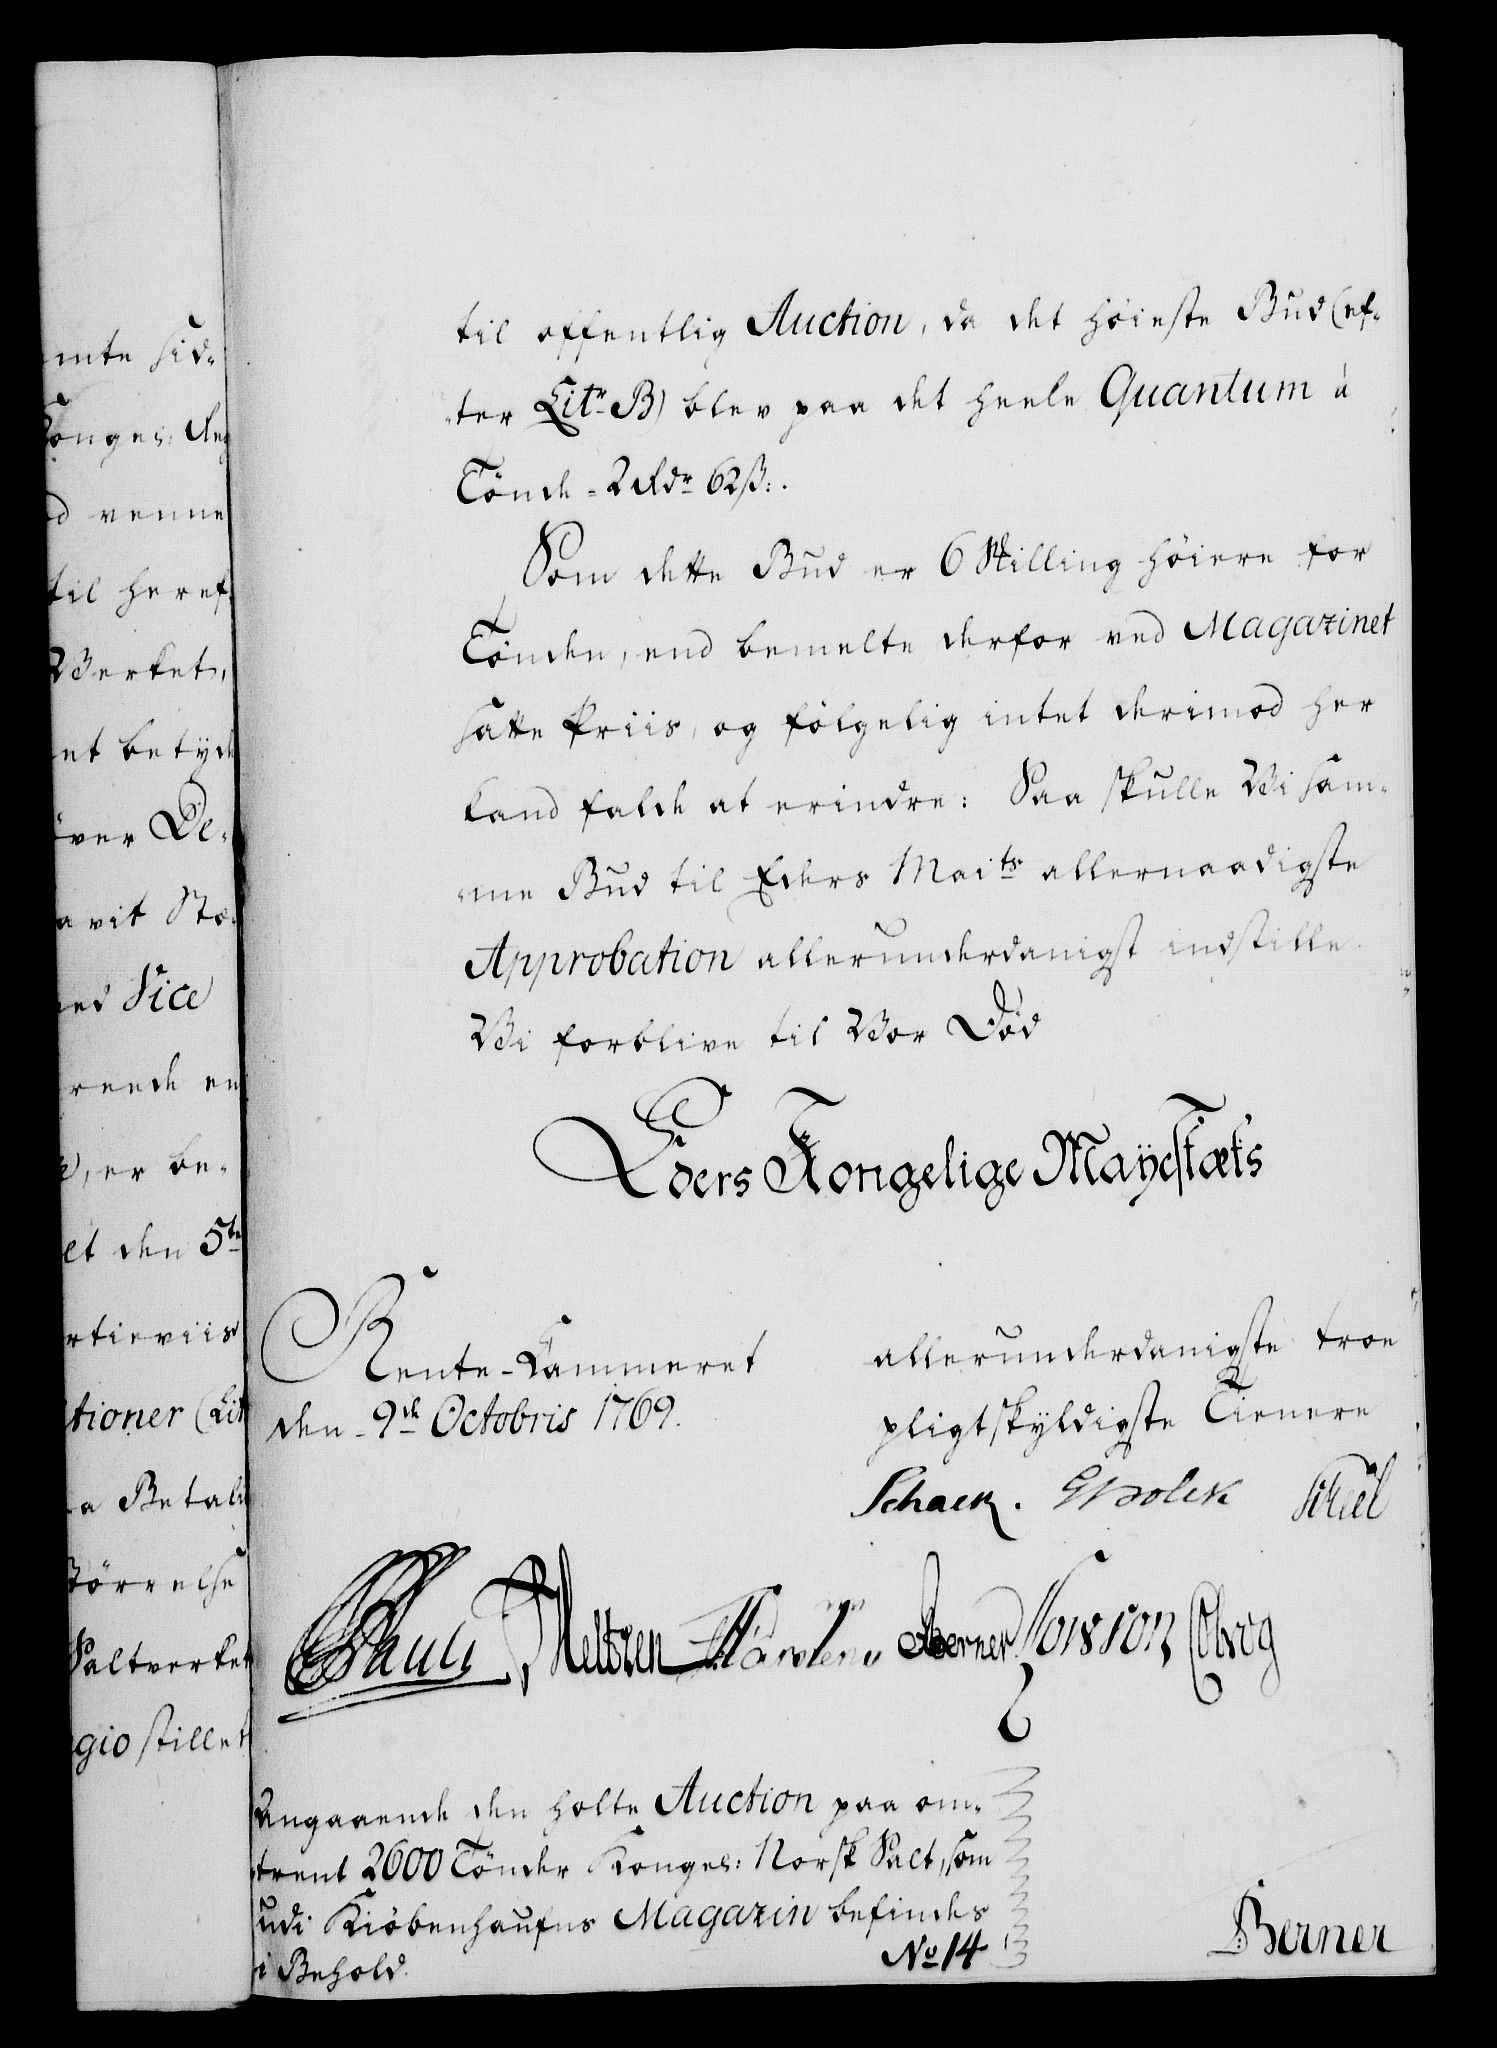 mte sid-
Konges: Reg
d venne
til heref-
Werket,
et betyde
over De-
avit Sta-
ed Vice
rende en
er be-
et den 5te
rtieviis
tioner (Lit
a Betal
törrelse
Saltverket
gio stillet
til offentlig Auction, da det höieste Bud (ef-
ter Litr B) blev paa det heele Quantum á
Tönde - 2 Rdr 62 ß:.
Som dette Bud er 6 Skilling höiere for
Tönden, end bemelte derfor ved Magazinet
satte Priis, og fölgelig intet derimod her
kand falde at erindre: Saa skulle Wi sam-
me Bud til Eders Maits allernaadigste
Approbation allerunderdanigst indstille.
Wi forblive til Vor Död
Eders Kongelige Mayestæts
Rente-Cammeret
den 9de Octobris 1769.
allerunderdanigste troe
pligtskyldigste Tienere
Schack.
Pauli Berner Cowson
Angaaende den holte Auction paa om-
trent 2600 Tönder Konges: Norsk Salt, som
udi Kiöbenhaufns Magazin befindes
i Behold.
No 14
Berner